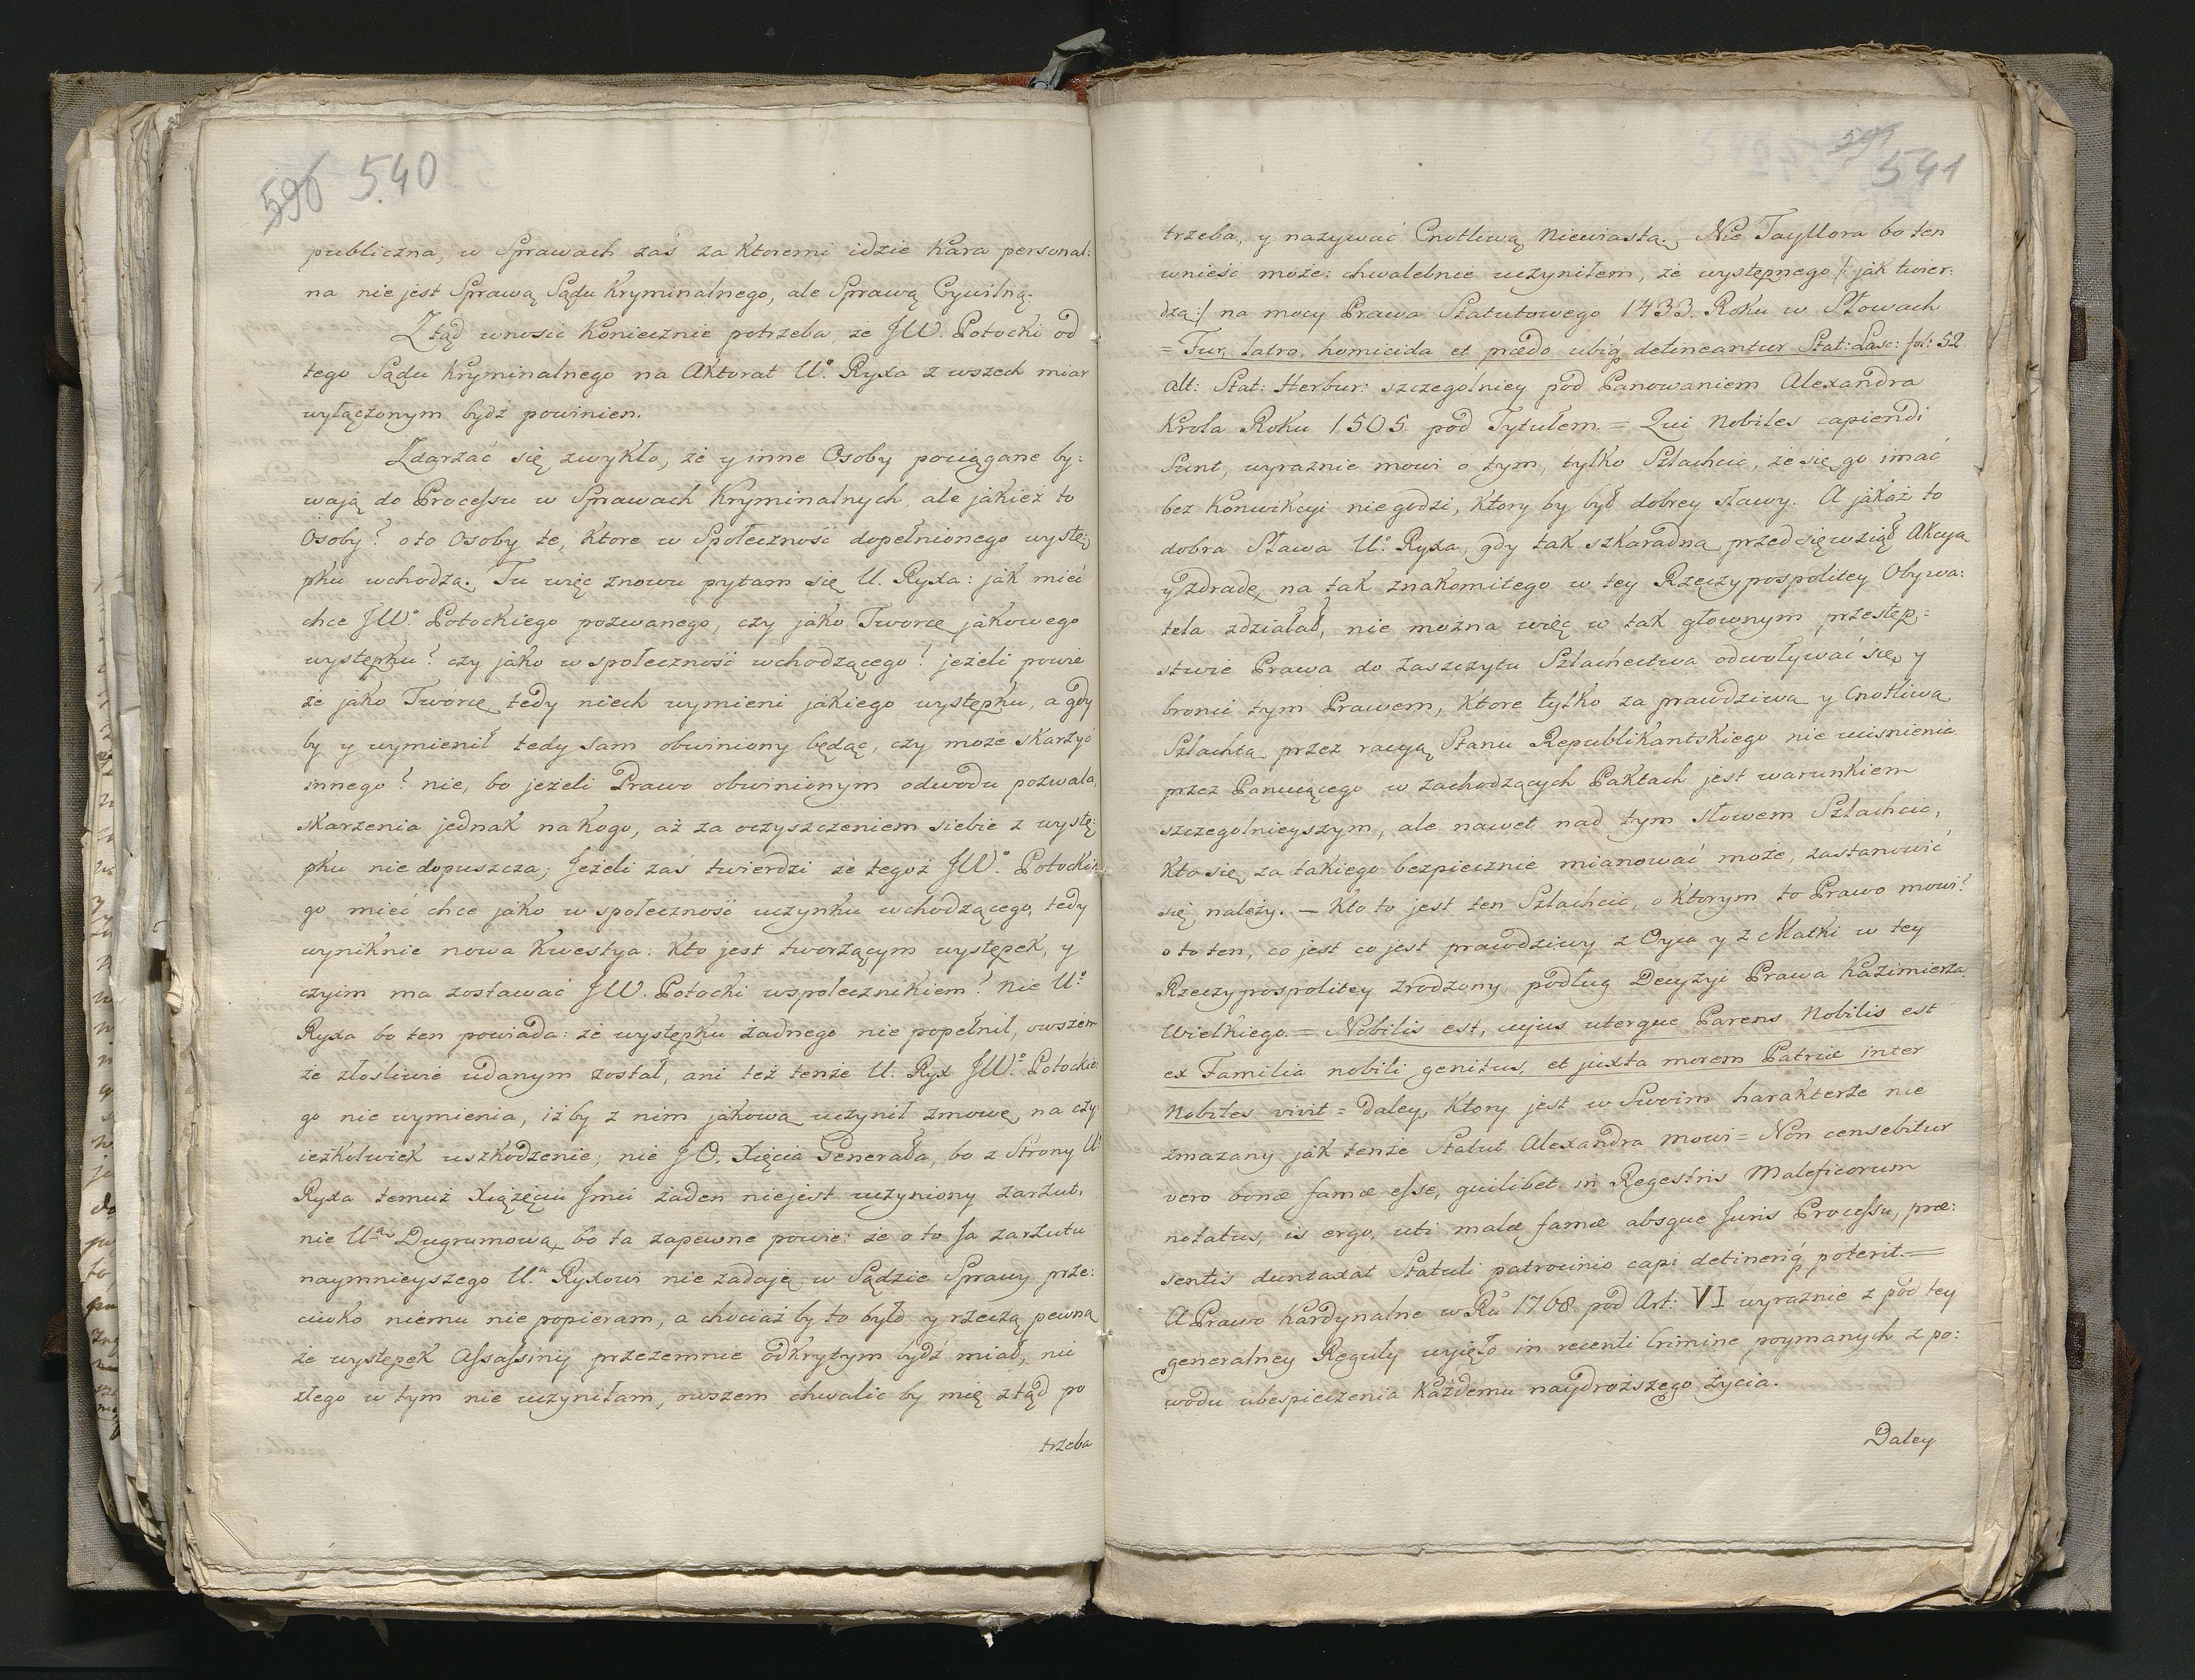 596 540
publiczna, w Sprawach zaś za ktoremi idzie Kara personal:
na nie jest Sprawą Sądu Kryminalnego, ale Sprawą Cywilną.
Ztąd wnosić koniecznie potrzeba, że JW. Potocki od
tego Sądu Kryminalnego na Aktorat Uº. Ryxa z wszech miar
wyłączonym bydź powinien.
Zdarzać się zwykło, że y inne Osoby pociągane by:
wają do Processu w Sprawach Kryminalnych, ale jakież to
Osoby? oto Osoby te, ktore w Społeczność dopełnionego wystę:
pku wchodzą. Tu więc znowu pytam się U. Ryxa: jak mieć
chce JWº. Potockiego pozwanego, czy jako Tworcę jakowego
występku? czy jako w społeczność wchodzącego? jeżeli powie
że jako Tworcę tedy niech wymieni jakiego występku, a gdy
by y wymienił tedy sam obwiniony będąc, czy może skarzyć
innego? nie, bo jeżeli Prawo obwinionym odwodu pozwala,
skarzenia jednak na kogo, aż za oczyszczeniem siebie z wystę:
pku nie dopuszcza; Jeżeli zaś twierdzi że tegoż JWº. Potockie:
go mieć chce jako w społeczność uczynku wchodzącego, tedy
wyniknie nowa kwestya: kto jest tworzącym występek, y
czyim ma zostawać JW. Potocki wspolecznikiem? nie Uº
Ryxa bo ten powiada: że występku żadnego nie popełnił, owszem
że złośliwie udanym został, ani też tenże U. Ryx JWº. Potockie:
go nie wymienia, iżby z nim jakową uczynił zmowę, na czy:
ieżkolwiek uszkodzenie; nie JO. Xięcia Generała, bo z Strony Uº
Ryxa temuż Xiążęciu Jmci żaden niejest uczyniony zarzut,
nie Uª Dugrumową bo ta zapewne powie: że oto Ja zarzutu
naymnieyszego Uª Ryxowi nie zadaję w Sądzie Sprawy prze:
ciwko niemu nie popieram, a chociaż by to było y rzeczą pewną
że występek Assassinij przezemnie odkrytym bydź miał, nic
złego w tym nie uczyniłam, owszem chwalić by mię ztąd po
trzeba
597
541
trzeba, y nazywać Cnotliwą Niewiastą. Nie Tayllora bo ten
wnieść może: chwalebnie uczyniłem, że występnego /: jak twier:
dzą :/ na mocy Prawa Statutowego 1433. Roku w Słowach
= Fur, latro, homicida et prædo ubiq detineantur Stat: Lasc: fol: 52
alt: Stat: Herbur: szczegolniey pod Panowaniem Alexandra
Krola Roku 1505. pod Tytułem = Qui Nobiles capiendi
Sunt, wyraznie mowi o tym, tylko Szlachcic, że się go imać
bez Konwikcyi niegodzi, ktory by był dobrey sławy. A jakaż to
dobra Sława Uº. Ryxa, gdy tak szkaradną przedsięwziął Akcyą
y zdradę na tak znakomitego w tey Rzeczypospolitey Obywa:
tela zdziałał, nie można więc w tak głownym przestęp:
stwie Prawa do zaszczytu Szlachectwa odwoływać się, y
bronić tym Prawem, ktore tylko za prawdziwą y Cnotliwą
Szlachtą przez racyą Stanu Republikantskiego nie ucisnienia
przez Panuiącego w zachodzących Paktach jest warunkiem
szczegolnieyszym, ale nawet nad tym słowem Szlachcic,
kto się za takiego bezpiecznie mianować może, zastanowić
się należy. — Kto to jest ten Szlachcic, o ktorym to Prawo mowi?
oto ten, co jest co jest prawdziwy z Oyca y z Matki w tey
Rzeczypospolitey zrodzony podług Decyzyi Prawa Kazimierza
Wielkiego. = Nobilis est, cujus uterque Parens Nobilis est
ex Familia nobili genitus, et juxta morem Patriæ inter
Nobiles vivit = daley, ktory jest w Swoim harakterze nie
zmazany jak tenże Statut Alexandra mowi = Non censebitur
vero bonæ famæ esse, quilibet in Regestris Maleficorum
notatus, is ergo, uti malæ famæ absque Juris Processu, præ:
sentis duntaxat Statuti patrocinio capi detineriq poterit. =
A Prawo Kardynalne w Rű 1768 pod Art: VI wyraznie z pod tey
generalney Reguły wyjęło in recenti Crimine poymanych z po:
wodu ubespieczenia Każdemu naydroższego życia.
Daley